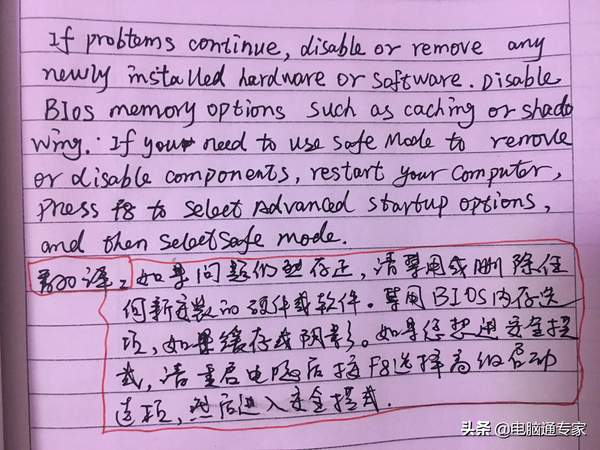 If problems continue, disable or remove any
newly installed hardware or software. Disable
BIOs memory options such as caching or shado
wing. If you need to use Safe Mode to remove
or disable components, restart your Computer,
Press f8 to select Advanced startup options,
and then select Safe mode.
翻译:如果问题仍然存在,请禁用或删除任
何新安装的硬件或软件。禁用BIOS内存选
项,如果缓存或阴影。如果您想进安全模
式,请重启电脑后按F8选择高级启动
选项,然后进入安全模式.
头条 @电脑通专家